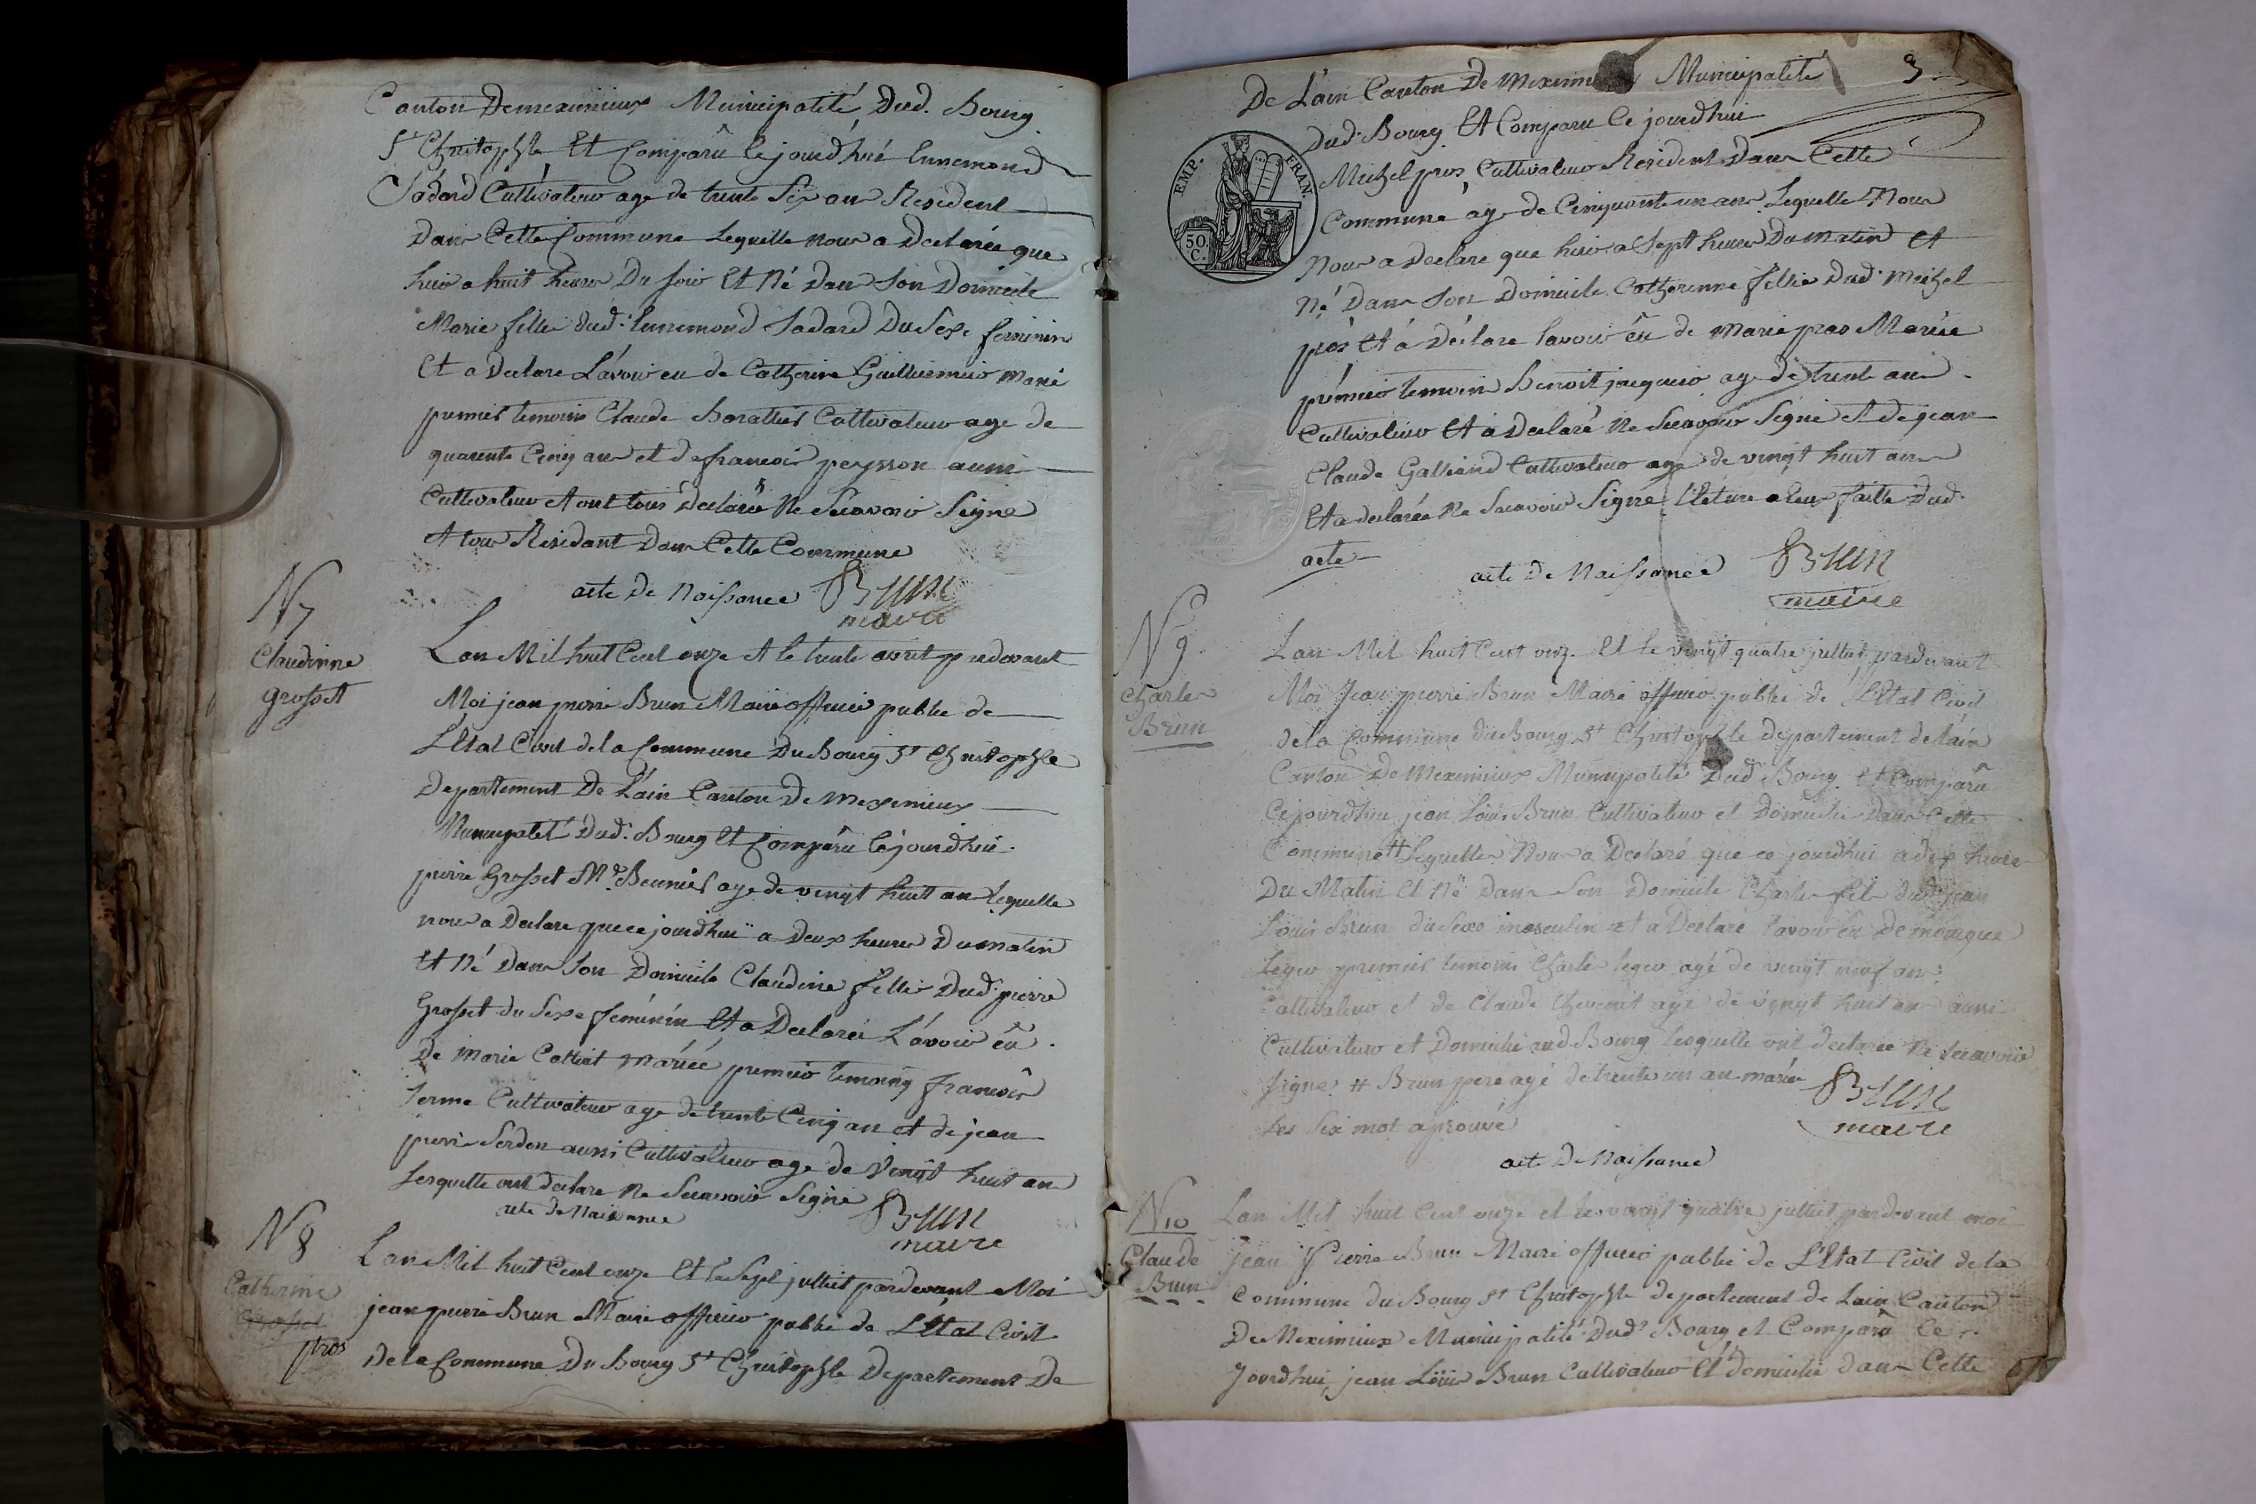 Canton De meximieux Municipalité Dud. Bourg
St Christophle Et Comparû Cejourdhui Ennemond
Jodard Cultivateur age de trente Six ans Resident
Dans Cette Commune Lequelle nous a Declarée que
hier a huit heure Du soir Et Né Dans Son Domicile
Marie fille dud. Ennemond Jodard Du Sexe feminin
Et a Declare L'avoir eu de Catherine Guilliermier marié
premier temoins Claude Cultivateur age de
quarente Cinq ans et de francois peysson aussi
Cultivateur Et ont tous Declarés Ne Scavoir Signe
Et tous Residant Dans Cette Commune
acte De Naissance Brun
maire
N 7
Claudinne
grosset
Lan Mil huit Cent onze Et le trente avril pardevant
Moi jean pierre Brun Maire officier public de
L'Etat Civil de la Commune Du Bourg St Christophle
Departement De L'ain Canton De meximieux
Municipalité Dud. Bourg Et Comparu Cejourdhui
pierre Grosset Md age de vingt huit an Lequelle
nous a Declare que ce jourdhui a Deux heures Du matin
Et Né Dans Son Domicile Claudine fille Dud. pierre
Grosset du Sexe féminin Et a Declarée L'avoir eû
De marie Marieé premier temoing francois
Cultivateur age de trente Cinq an et de jean
pierre aussi Cultivateur age de Vingt huit an
Lesquelle ont declare Ne Scavoir Signe Brun
acte de Naissance maire
N 8
Catherine
Grosset
pros
Lan Mil huit Cent onze Et le Sept julliet pardevant Moi
jean pierre Brun Maire officier public de L'Etat Civil
De la Commune Du Bourg St Christophle Departement De
3
De L'ain Canton De Municipalité
Dud. Bourg Et Comparu Ce jourdhui
Michel pros Cultivateur Resident Dans Cette
Commune age de Cinquante un ans Lequelle Nous
Nous a Declare que hier a Sept heures Du matin Et
Né Dans Son Domicile Catherinne fillie Dud. Michel
pros Et a Déclare lavoir êu de Marie pras Mariée
prémier temoin Benoit jacquier age de trente ans
Cultivateur Et a Declaré Ne Scavoir Signé Et de jean
Claude Galliand Cultivateur age de vingt huit ans
Et a declarée Ne Scavoir Signe L'léture a leur faitte Dud.
acte
EMP. FRAN.
50 C.
acte De Naissance Brun
maire
N 9
Charles
Brun
Lan Mil huit Cent onz. Et le vingt quatre julliet pardevant
Moi Jean pierre Brun Maire officier public de L'Etat Civil
De la Commune du Bourg St Christophle departement de lain
Canton De Meximieux Municipalité Dud. Bourg Et Comparû
Cejourdhui jean Louis Brun Cultivateur et Domicilie Dans Cette
Commune # Lequelle Nous a Declaré que ce jourdhui a dix heure
Du Matin Et Né Dans Son Domicile Charle fils dud. jean
Louis Brun du Sexe masculin et a Declaré lavoir eu De
premier temoin Charle age de vingt neuf an
Cultivateur et de Claude age de vingt huit an aussi
Cultivateur et Domicilié aud Bourg Lesquelle ont declaree Ne Scavoir
Signe # Brun pere agé de trente un an marié Brun
Les Six mot aprouvé maire
acte De Naissance
N 10
Claude
Brun
Lan Mil huit Cent onze et le vingt quatre julliet pardevant moi
Jean Pierre Brun Maire officier public de L'Etat Civil de la
Commune du Bourg St Christophle departement de Lain Canton
De Meximieux Municipalité Dud. Bourg et Comparû Ce
Jourdhui jean Louis Brun Cultivateur Et domicilie dans Cette